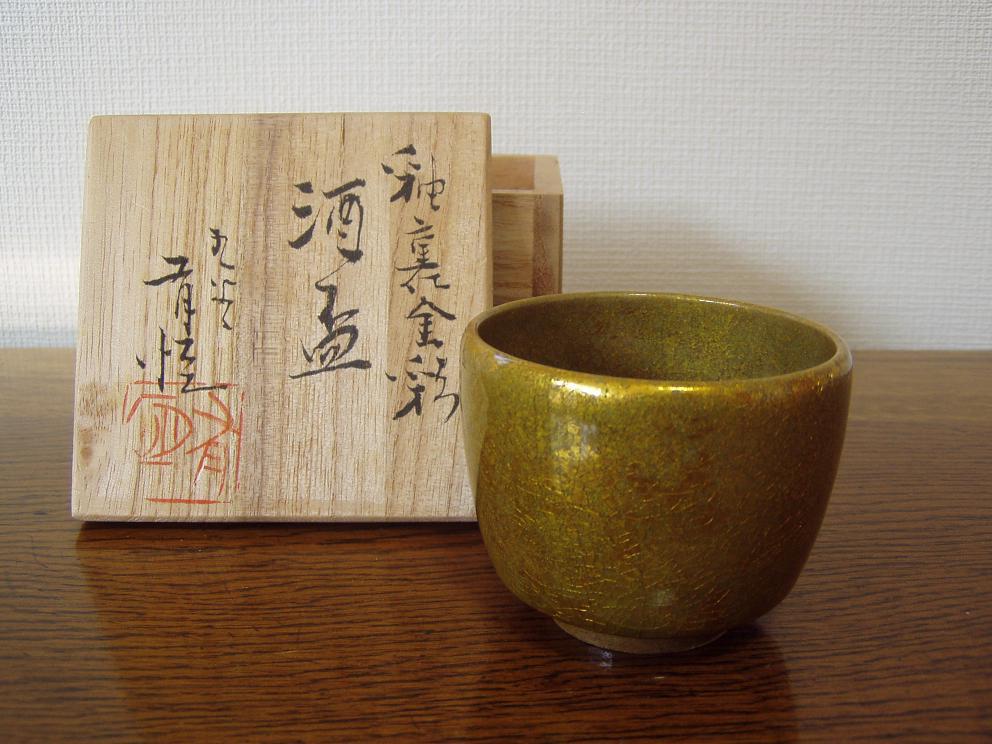 釉裏金彩
酒盃
九谷